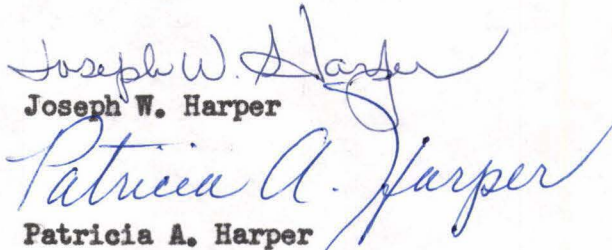 Joseph W. Harper
Joseph W. Harper
Patricia A. Harper
Patricia A. Harper